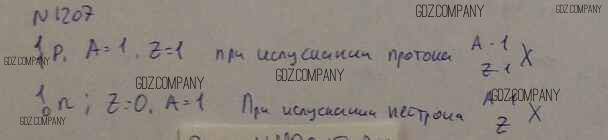 N 1207
GDZ.COMPANY
GDZ.COMPANY
¹₁P, A=1, Z=1 при испускании протона ᴬ⁻¹ Z-1 X
GDZ.COMPANY
GDZ.COMPANY
GDZ.COMPANY
GDZ.COMPANY
¹₀n; Z=0, A=1 При испускании нейтрона ᴬ⁻¹ Z X
GDZ.COMPANY